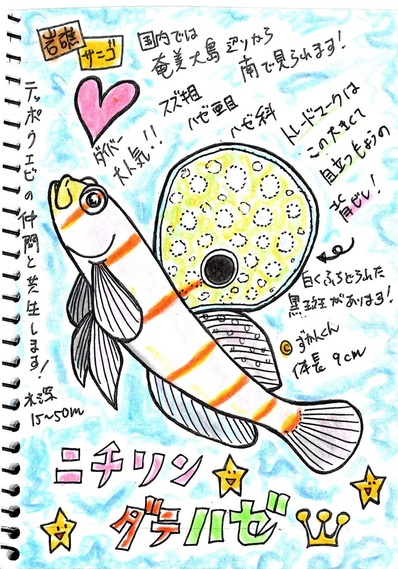 岩礁
サンゴ
国内では
奄美大島辺りから
南で見られます!
スズキ目
ハゼ亜目
ハゼ科
ダイバー
大人気!!
トレードマークは
この大きくて
目立つもようの
背ビレ!
白くふちどられた
黒斑があります!
©ずかんくん
体長 9cm
テッポウエビの仲間と共生します!
水深
15~50m
ニチリン
ダテハゼ